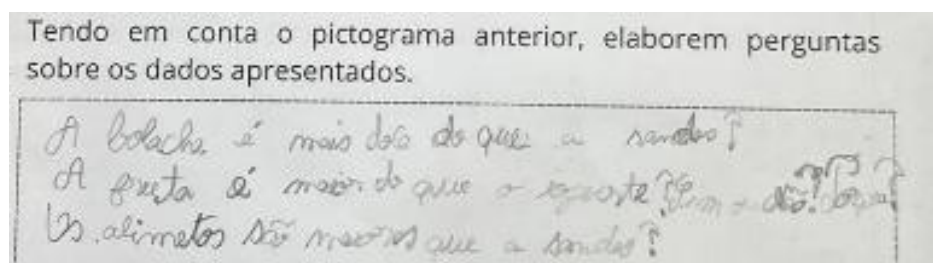 Tendo em conta o pictograma anterior, elaborem perguntas
sobre os dados apresentados.
A bolacha é mais do do que a sandes?
A fruta é maior do que o iogurte?
Os alimetos são maores que a sandes?